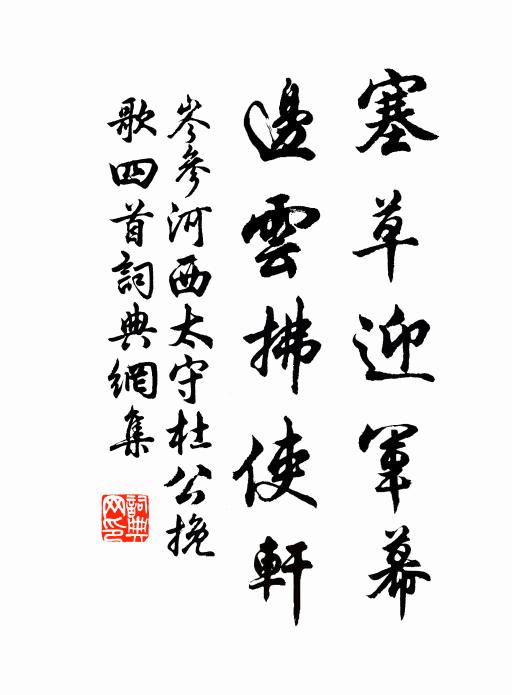 塞草迎軍幕
邊雲拂使軒
岑參河西太守杜公挽
歌四首詞典網集
詞典网印